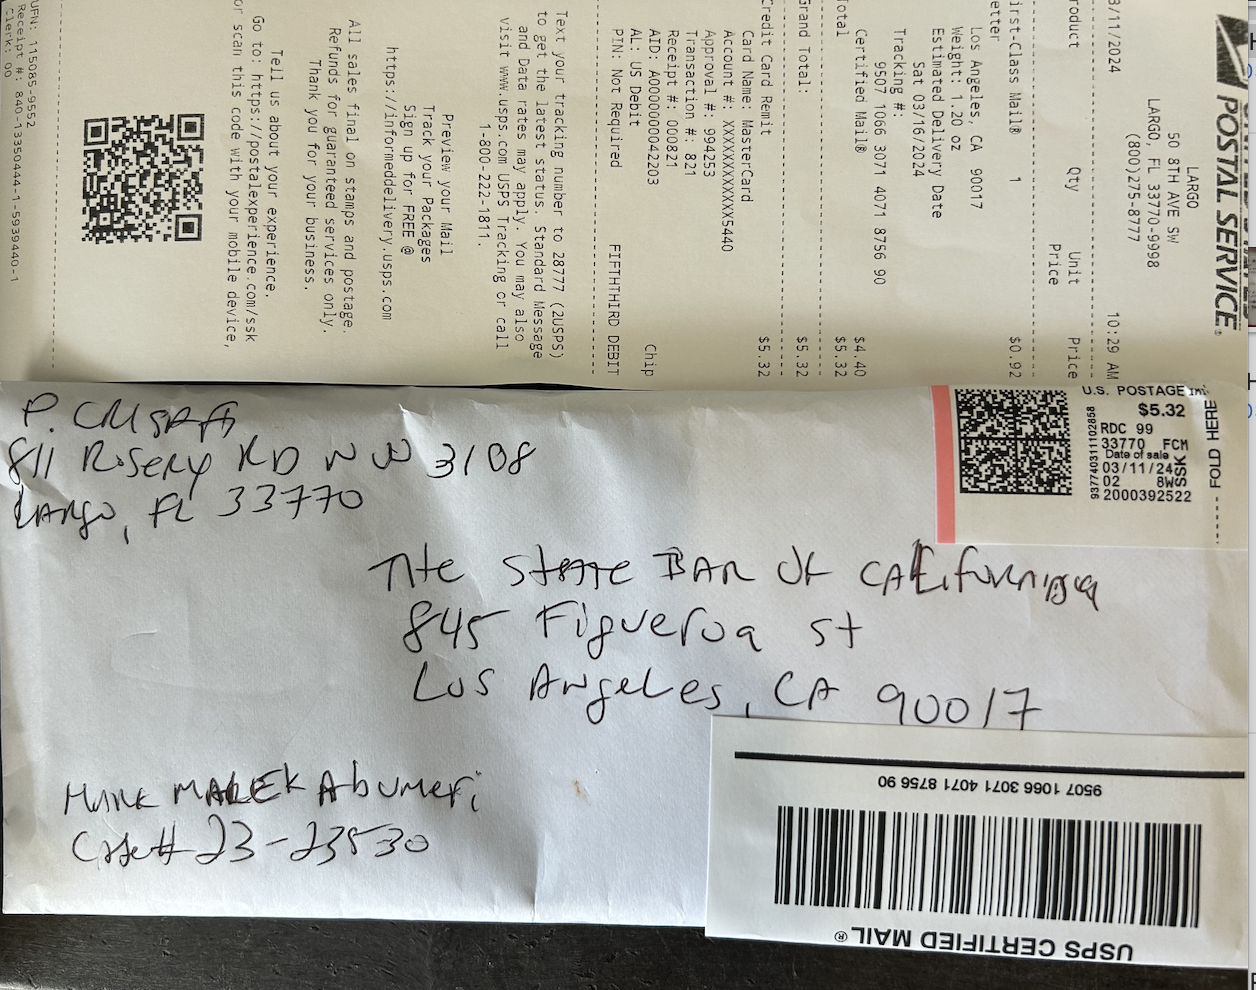 POSTAL SERVICE®
LARGO
50 8TH AVE SW
LARGO, FL 33770-9998
(800)275-8777
3/11/2024 10:29 AM
roduct Qty Unit Price
Price
irst-Class Mail® 1 $0.92
etter
Los Angeles, CA 90017
Weight: 1.20 oz
Estimated Delivery Date
Sat 03/16/2024
Tracking #:
9507 1066 3071 4071 8756 90
Certified Mail® $4.40
otal $5.32
Grand Total: $5.32
Credit Card Remit $5.32
Card Name: MasterCard
Account #: XXXXXXXXXXXX5440
Approval #: 994253
Transaction #: 821
Receipt #: 000821
AID: A0000000042203 Chip
AL: US Debit
PIN: Not Required FIFTHTHIRD DEBIT
Text your tracking number to 28777 (2USPS)
to get the latest status. Standard Message
and Data rates may apply. You may also
visit www.usps.com USPS Tracking or call
1-800-222-1811.
Preview your Mail
Track your Packages
Sign up for FREE @
https://informeddelivery.usps.com
All sales final on stamps and postage.
Refunds for guaranteed services only.
Thank you for your business.
Tell us about your experience.
Go to: https://postalexperience.com/ssk
or scan this code with your mobile device,
UFN: 115085-9552
Receipt #: 840-13350444-1-5939440-1
Clerk: 00
P. CRISPA
811 ROSERY RD NW 3108
LARGO, FL 33770
U.S. POSTAGE
$5.32
RDC 99
33770 FCM
Date of sale
03/11/24
02 8W SSK
2000392522
FOLD HERE
THE STATE BAR OF CALIFORNIA
845 Figueroa St
Los Angeles, CA 90017
MARK MALEK Abumeri
Case# 23-23530
9507 1066 3071 4071 8756 90
USPS CERTIFIED MAIL®